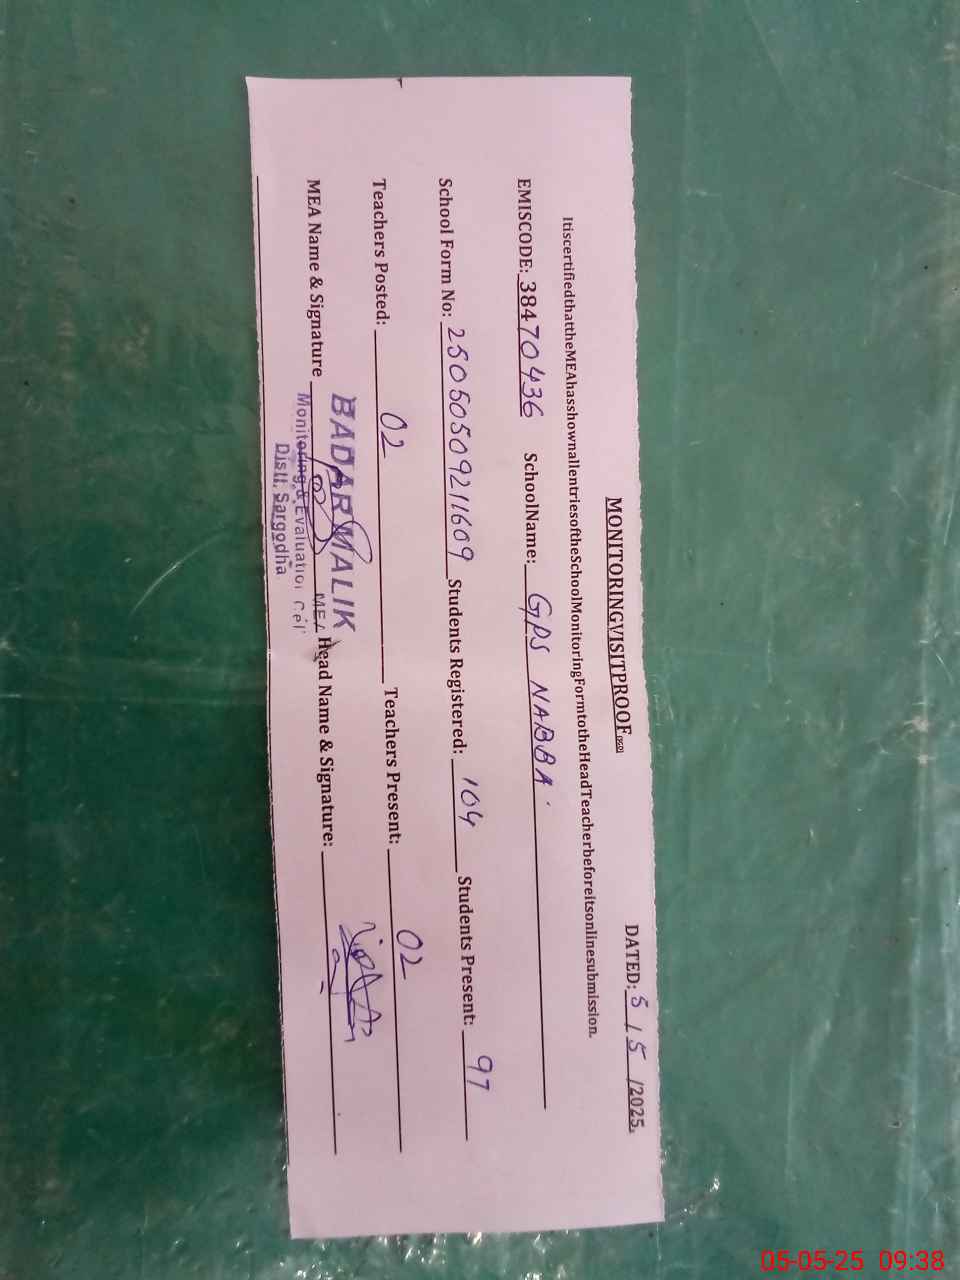 MONITORINGVISITPROOF
DATED: 5 / 5 /2025.
ItiscertifiedthattheMEAhasshownallentriesoftheSchoolMonitoringFormtotheHeadTeacherbeforeitsonlinesubmission.
EMISCODE: 38470436 SchoolName: GPS NABBA.
School Form No: 25050509211609 Students Registered: 104 Students Present: 97
Teachers Posted: 02 Teachers Present: 02
MEA Name & Signature BADAR MALIK MEA Head Name & Signature:
Monitoring & Evaluation Cell
Distt. Sargodha
05-05-25 09:38